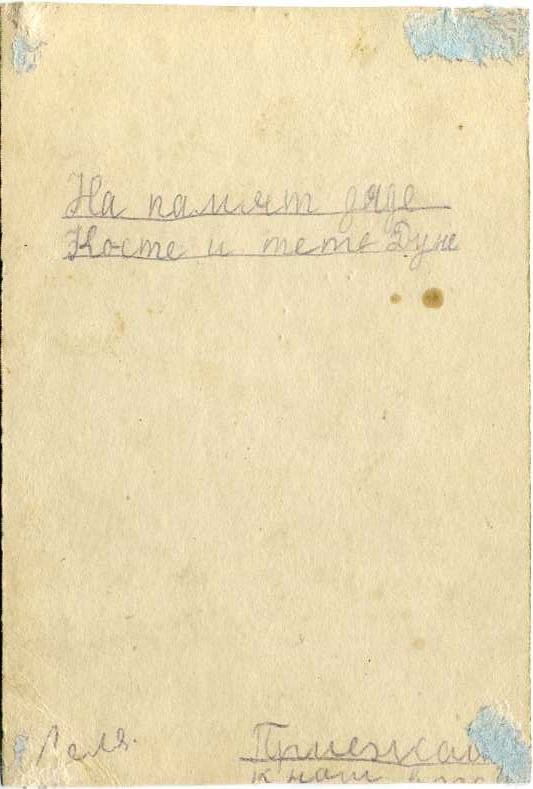 На памят дяде
Косте и тете Дуне
Леля.
Приезжай
к нам